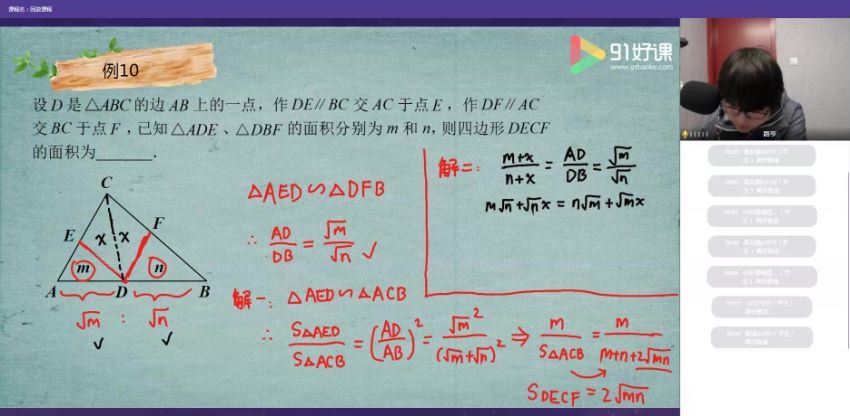 课程名：回放课程
例10
91好课
www.91haoke.com
设D是△ABC的边AB上的一点，作DE∥BC交AC于点E，作DF∥AC
交BC于点F，已知△ADE、△DBF的面积分别为m和n，则四边形DECF
的面积为______．
C
E
F
x x
m n
A D B
√m : √n
✓ ✓
△AED∽△DFB
∴ AD/DB = √m/√n ✓
解一: △AED∽△ACB
∴ S△AED/S△ACB = (AD/AB)² = √m²/(√m+√n)² ⇒ m/S△ACB = m/m+n+2√mn
S DECF = 2√mn
解二: m+x/n+x = AD/DB = √m/√n
m√n+√nx = n√m+√mx